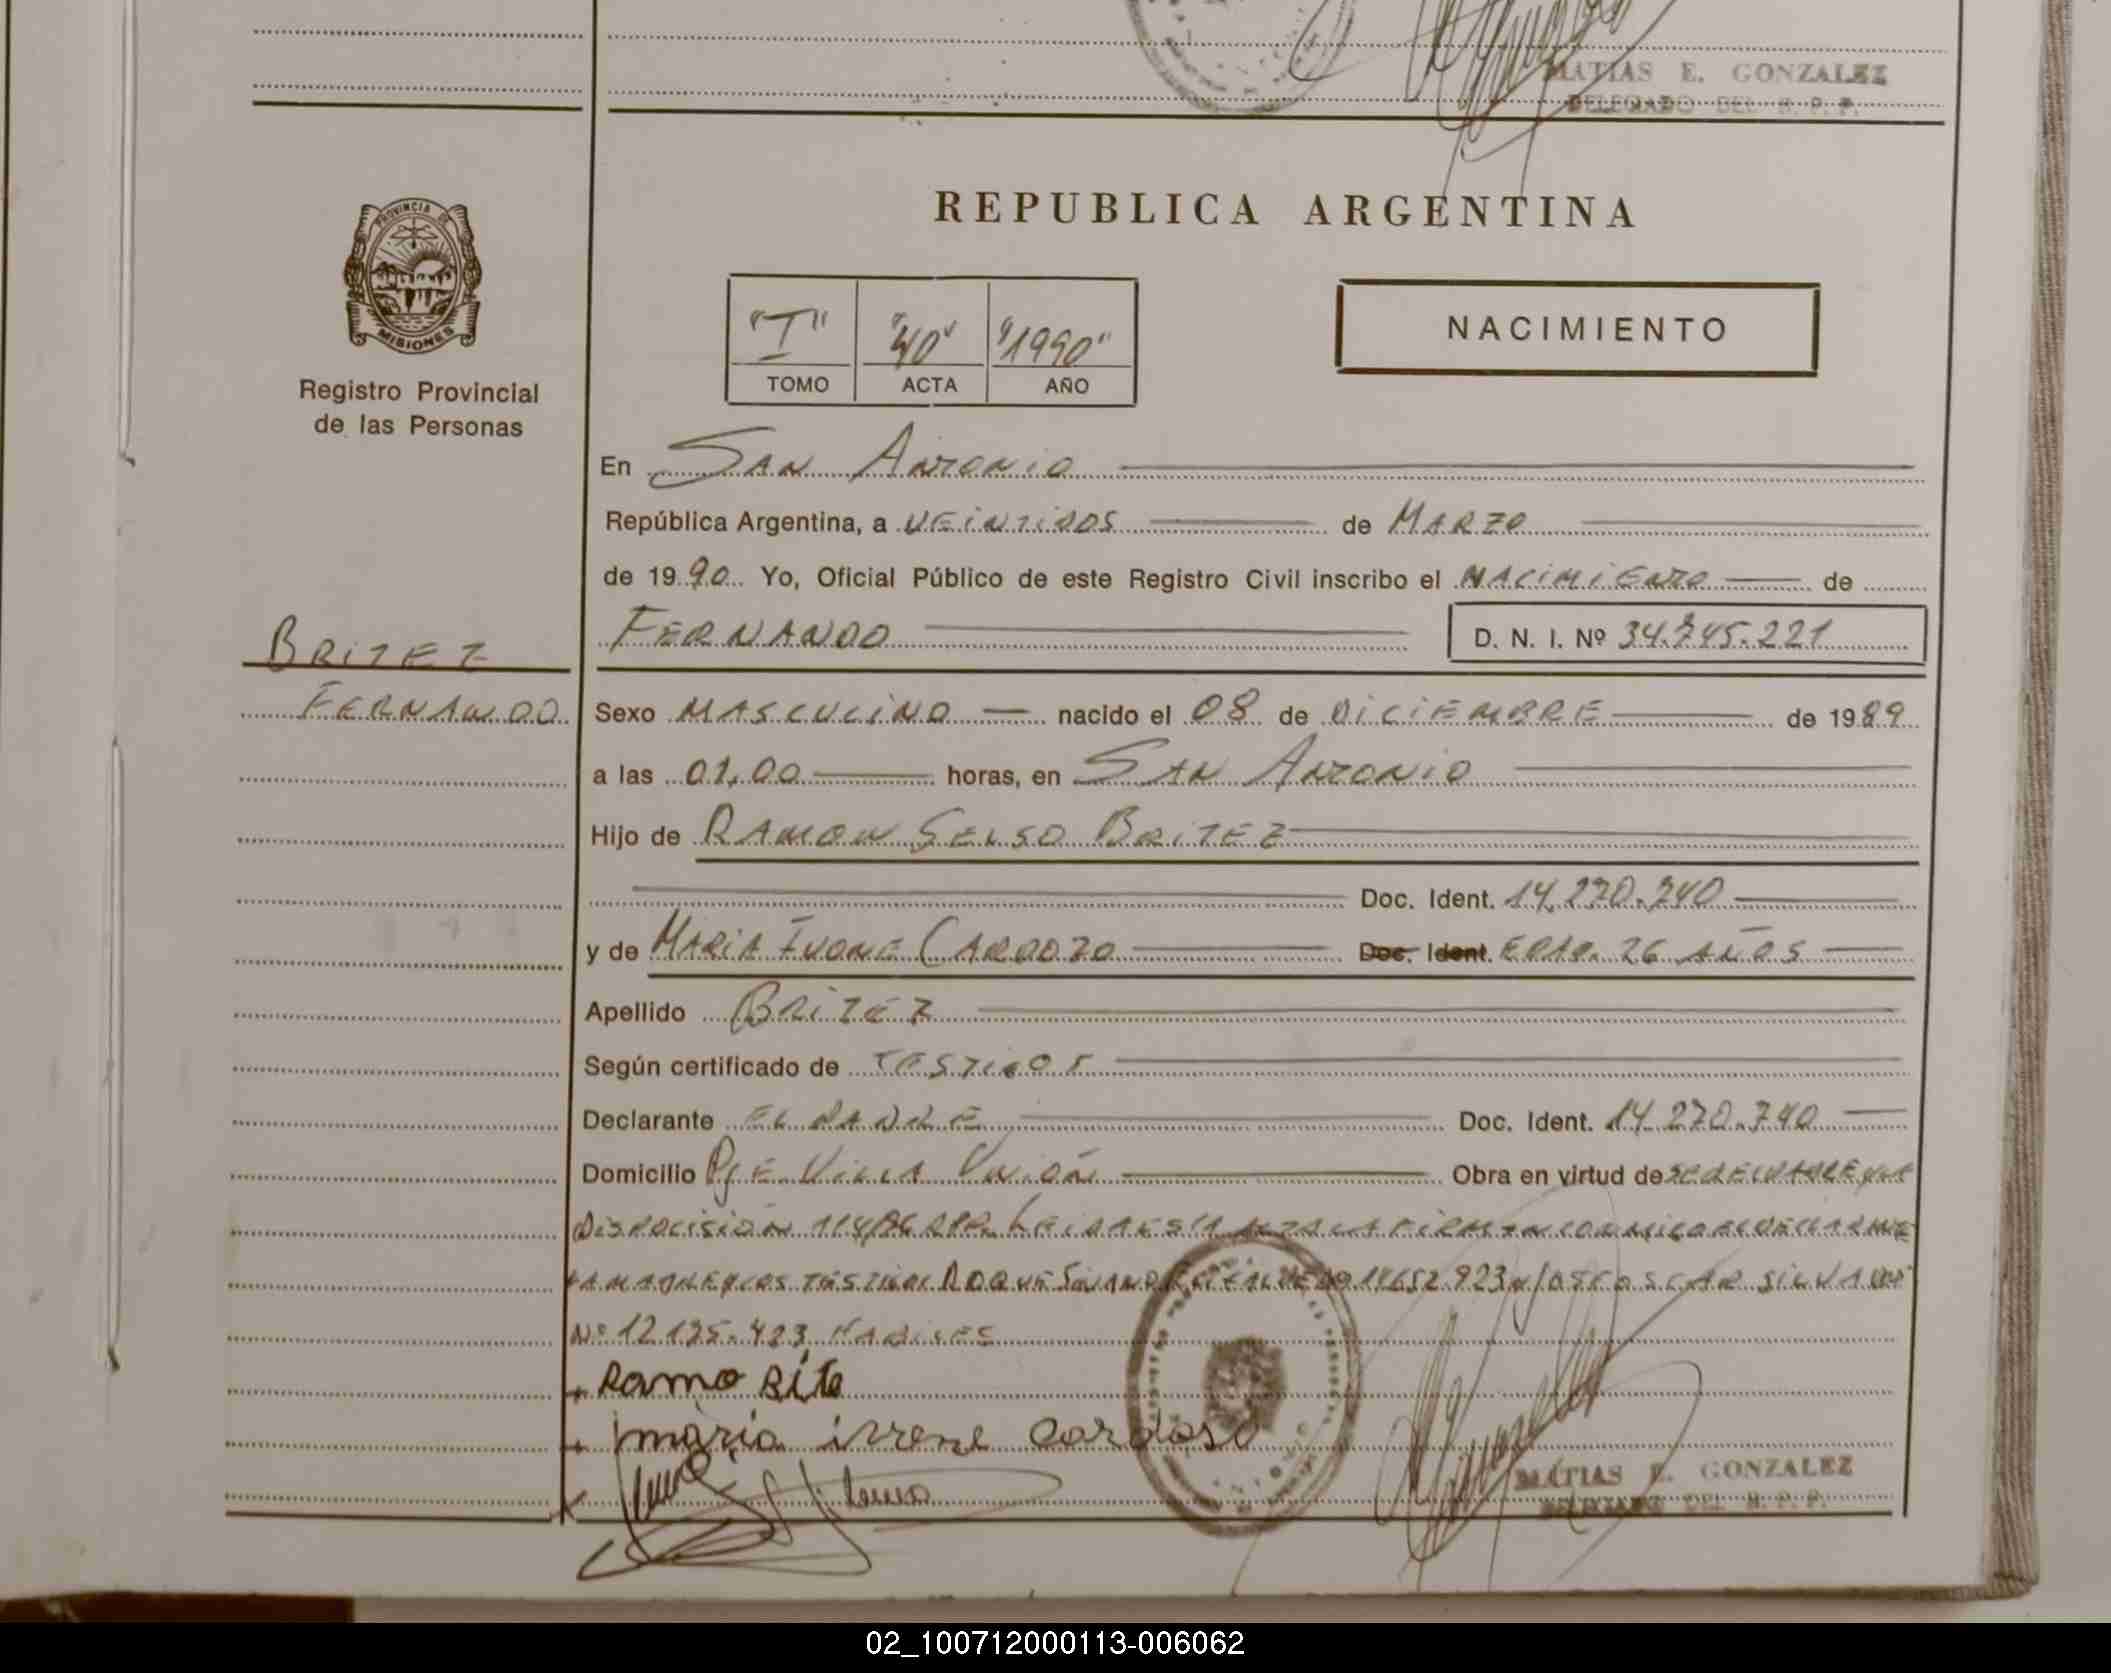 MATIAS E. GONZALEZ
DELEGADO DEL R. P. P.
PROVINCIA DE
MISIONES
Registro Provincial
de las Personas
REPUBLICA ARGENTINA
"I" "40" "1990"
TOMO ACTA AÑO
NACIMIENTO
En SAN ANTONIO
República Argentina, a VEINTIDOS de MARZO
de 1990 Yo, Oficial Público de este Registro Civil inscribo el NACIMIENTO de
FERNANDO D. N. I. Nº 34.745.221
BRITEZ
FERNANDO
Sexo MASCULINO nacido el 08 de DICIEMBRE de 1989
a las 01,00 horas, en SAN ANTONIO
Hijo de RAMON SELSO BRITEZ
Doc. Ident. 14.270.740
y de MARIA IVONE CARDOZO Doc. Ident. EDAD. 26 AÑOS
Apellido BRITEZ
Según certificado de TESTIGOS
Declarante EL PADRE Doc. Ident. 14.270.740
Domicilio PJE VILLA UNIÓN Obra en virtud de
DISPOCISIÓN LEIDA ESTA ACTA LA FIRMAN CONMIGO EL DECLARANTE
LA MADRE Y LOS TESTIGOS ROQUE OSCAR SILVA
Nº 12.195.423
Ramo Bite
maria irrene cardoso
MATIAS E. GONZALEZ
DELEGADO DEL R. P. P.
02_100712000113-006062